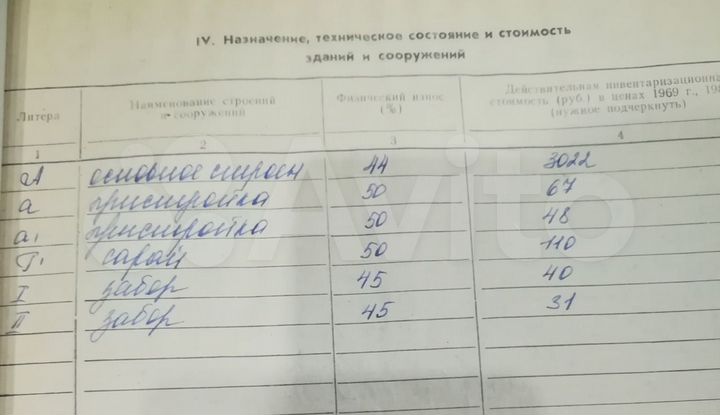 IV. Назначение, техническое состояние и стоимость
зданий и сооружений
Литера Наименование строений и сооружений Физический износ (%) Действительная инвентаризационная стоимость (руб.) в ценах 1969 г., 198 (нужное подчеркнуть)
1 2 3 4
А основное строен 44 3022
а пристройка 50 67
а₁ пристройка 50 48
Г¹ сарай 50 110
I забор 45 40
II забор 45 31
Avito